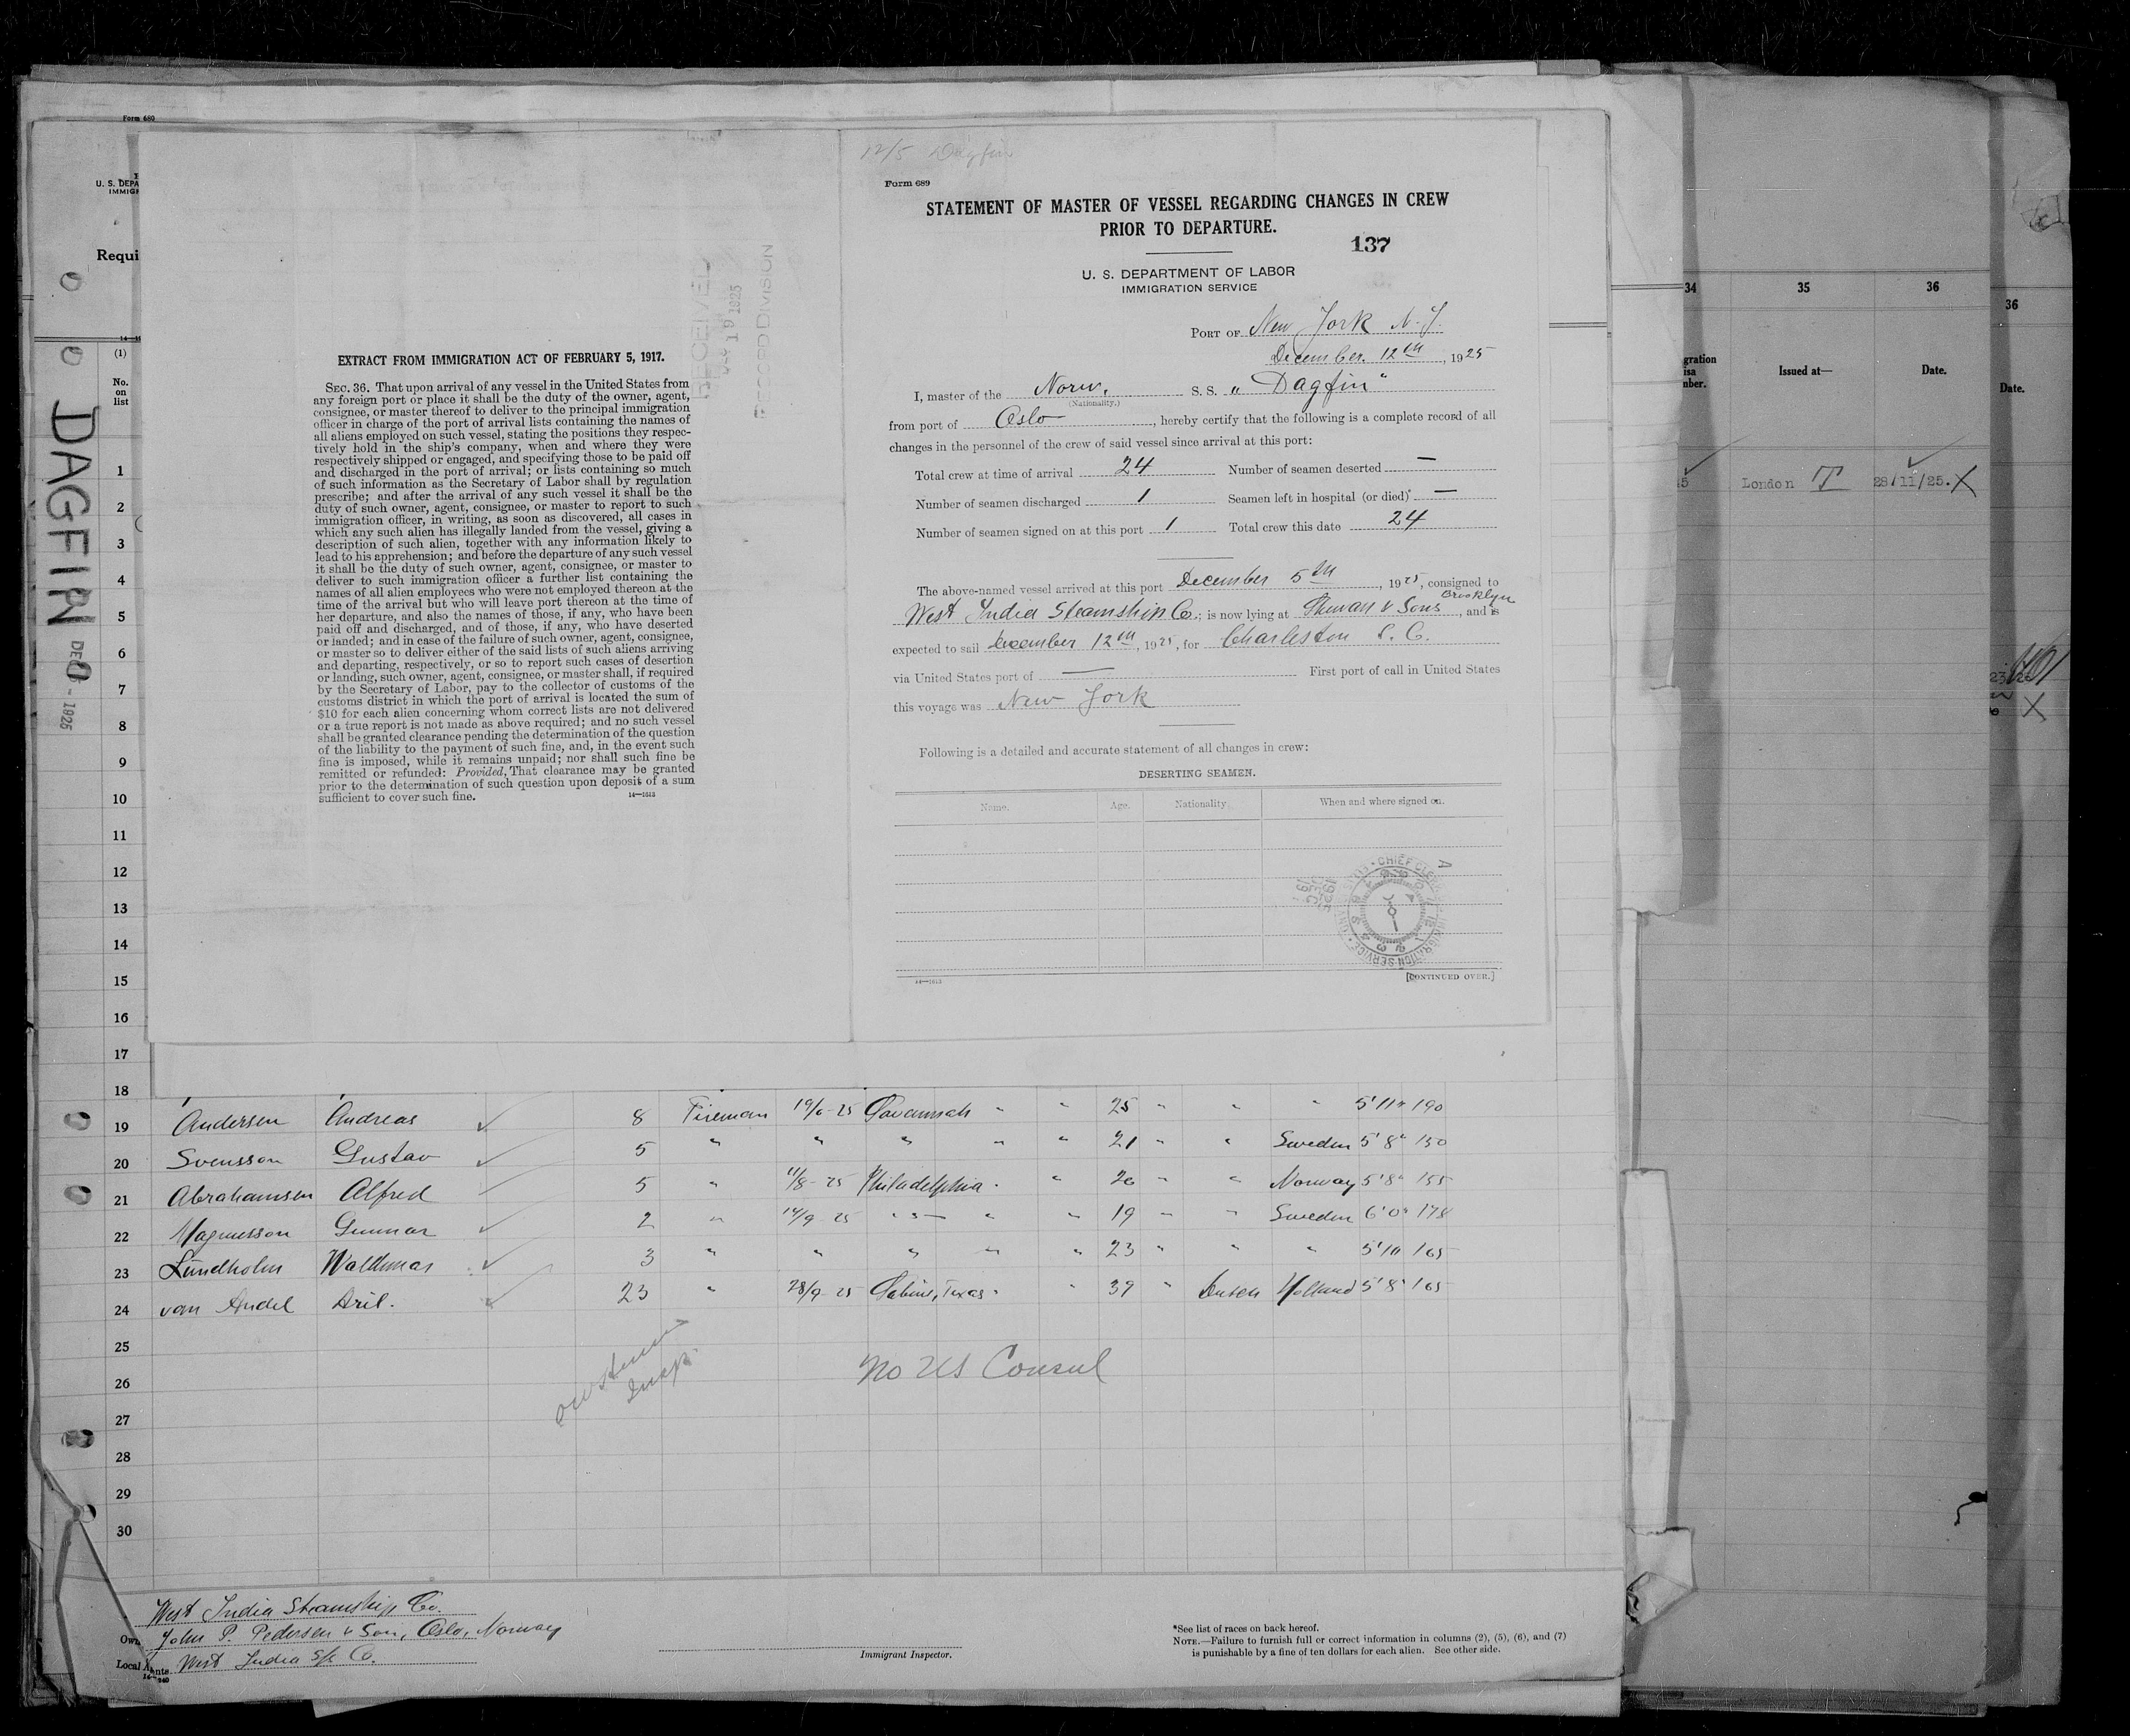 Form 680
U. S. DEPA
IMMIGR
Requi
(1)
No.
on
list
DAGFIN
DEC 5 - 1925
EXTRACT FROM IMMIGRATION ACT OF FEBRUARY 5, 1917.
SEC. 36. That upon arrival of any vessel in the United States from
any foreign port or place it shall be the duty of the owner, agent,
consignee, or master thereof to deliver to the principal immigration
officer in charge of the port of arrival lists containing the names of
all aliens employed on such vessel, stating the positions they respec-
tively hold in the ship's company, when and where they were
respectively shipped or engaged, and specifying those to be paid off
and discharged in the port of arrival; or lists containing so much
of such information as the Secretary of Labor shall by regulation
prescribe; and after the arrival of any such vessel it shall be the
duty of such owner, agent, consignee, or master to report to such
immigration officer, in writing, as soon as discovered, all cases in
which any such alien has illegally landed from the vessel, giving a
description of such alien, together with any information likely to
lead to his apprehension; and before the departure of any such vessel
it shall be the duty of such owner, agent, consignee, or master to
deliver to such immigration officer a further list containing the
names of all alien employees who were not employed thereon at the
time of the arrival but who will leave port thereon at the time of
her departure, and also the names of those, if any, who have been
paid off and discharged, and of those, if any, who have deserted
or landed; and in case of the failure of such owner, agent, consignee,
or master so to deliver either of the said lists of such aliens arriving
and departing, respectively, or so to report such cases of desertion
or landing, such owner, agent, consignee, or master shall, if required
by the Secretary of Labor, pay to the collector of customs of the
customs district in which the port of arrival is located the sum of
$10 for each alien concerning whom correct lists are not delivered
or a true report is not made as above required; and no such vessel
shall be granted clearance pending the determination of the question
of the liability to the payment of such fine, and, in the event such
fine is imposed, while it remains unpaid; nor shall such fine be
remitted or refunded: Provided, That clearance may be granted
prior to the determination of such question upon deposit of a sum
sufficient to cover such fine.
14—1613
RECEIVED
DEC 19 1925
RECORD DIVISION
12/5 Dagfin
Form 689
STATEMENT OF MASTER OF VESSEL REGARDING CHANGES IN CREW
PRIOR TO DEPARTURE.
137
U. S. DEPARTMENT OF LABOR
IMMIGRATION SERVICE
PORT OF New York N. Y.
December. 12th, 1925
I, master of the Norw. S. S. "Dagfin"
(Nationality.)
from port of Oslo, hereby certify that the following is a complete record of all
changes in the personnel of the crew of said vessel since arrival at this port:
Total crew at time of arrival 24 Number of seamen deserted —
Number of seamen discharged 1 Seamen left in hospital (or died) —
Number of seamen signed on at this port 1 Total crew this date 24
The above-named vessel arrived at this port December 5th, 1925, consigned to
West India Steamship Co.; is now lying at & Sons Brooklyn, and is
expected to sail December 12th, 1925, for Charleston S. C.
via United States port of — First port of call in United States
this voyage was New York
Following is a detailed and accurate statement of all changes in crew:
DESERTING SEAMEN.
Name. Age. Nationality. When and where signed on.
CHIEF CLERK
IMMIGRATION SERVICE
[CONTINUED OVER.]
14—1613
34 35 36
gration
isa
mber. Issued at— Date.
5 London T 28/11/25. X
36
Date.
X
1
2
3
4
5
6
7
8
9
10
11
12
13
14
15
16
17
18
19 Andersen Andreas ✓ 8 Fireman 19/6-25 Savannah " " 25 " " " 5'11" 190
20 Svensson Gustav ✓ 5 " " " " " 21 " " Sweden 5'8" 150
21 Abrahamsen Alfred 5 " 11/8-25 Philadelphia " " 26 " " Norway 5'8" 155
22 Magnusson Gunnar ✓ 2 " 14/9-25 " " " 19 " " Sweden 6'0" 178
23 Lundholm Waldemar ✓ 3 " " " " " 23 " " " 5'10 165
24 van Andel Aril. ✓ 23 " 28/9-25 Sabine, Texas " " 39 " Dutch Holland 5'8" 165
25
26 No US Consul
27
28
29
30
West India Steamship Co.
Own John P. Pedersen & Son, Oslo, Norway
Local Agents West India S/S Co.
Immigrant Inspector.
*See list of races on back hereof.
NOTE.—Failure to furnish full or correct information in columns (2), (5), (6), and (7)
is punishable by a fine of ten dollars for each alien. See other side.